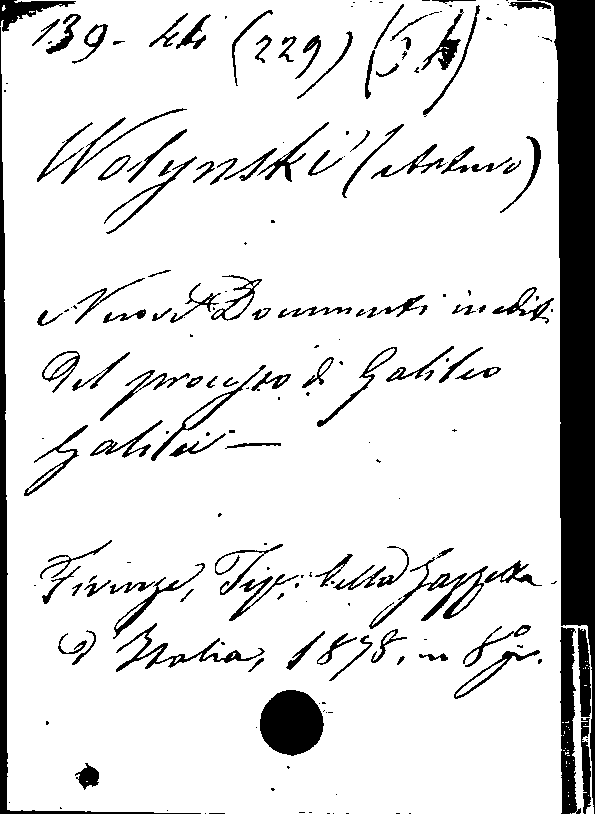 139- (229)
Wolynski (Arturo)
Nuovi Documenti inediti
del processo di Galileo
Galilei —
Firenze, Tip. della Gazzetta
d'Italia, 1878, in 8º gr.